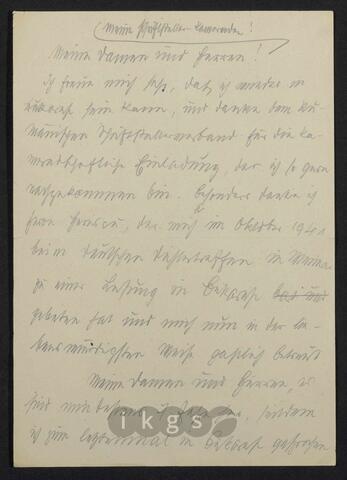 Meine Schriftsteller-Kameraden!
Meine Damen und Herren!
Ich freue mich sehr, daß ich wieder in
Bukarest sein kann, und danke dem Ru-
mänischen Schriftstellerverband für die ka-
meradschaftliche Einladung, der ich so gern
nachgekommen bin. Besonders danke ich
Herrn, der mich im Oktober 1941
beim deutschen Dichtertreffen in Weimar
zu einer Lesung in Bukarest
gebeten hat und mich nun in der lie-
benswürdigsten Weise gastlich betreut
Meine Damen und Herren, es
sind, seitdem
ich zum letztenmal in Bukarest gesprochen
ikgs